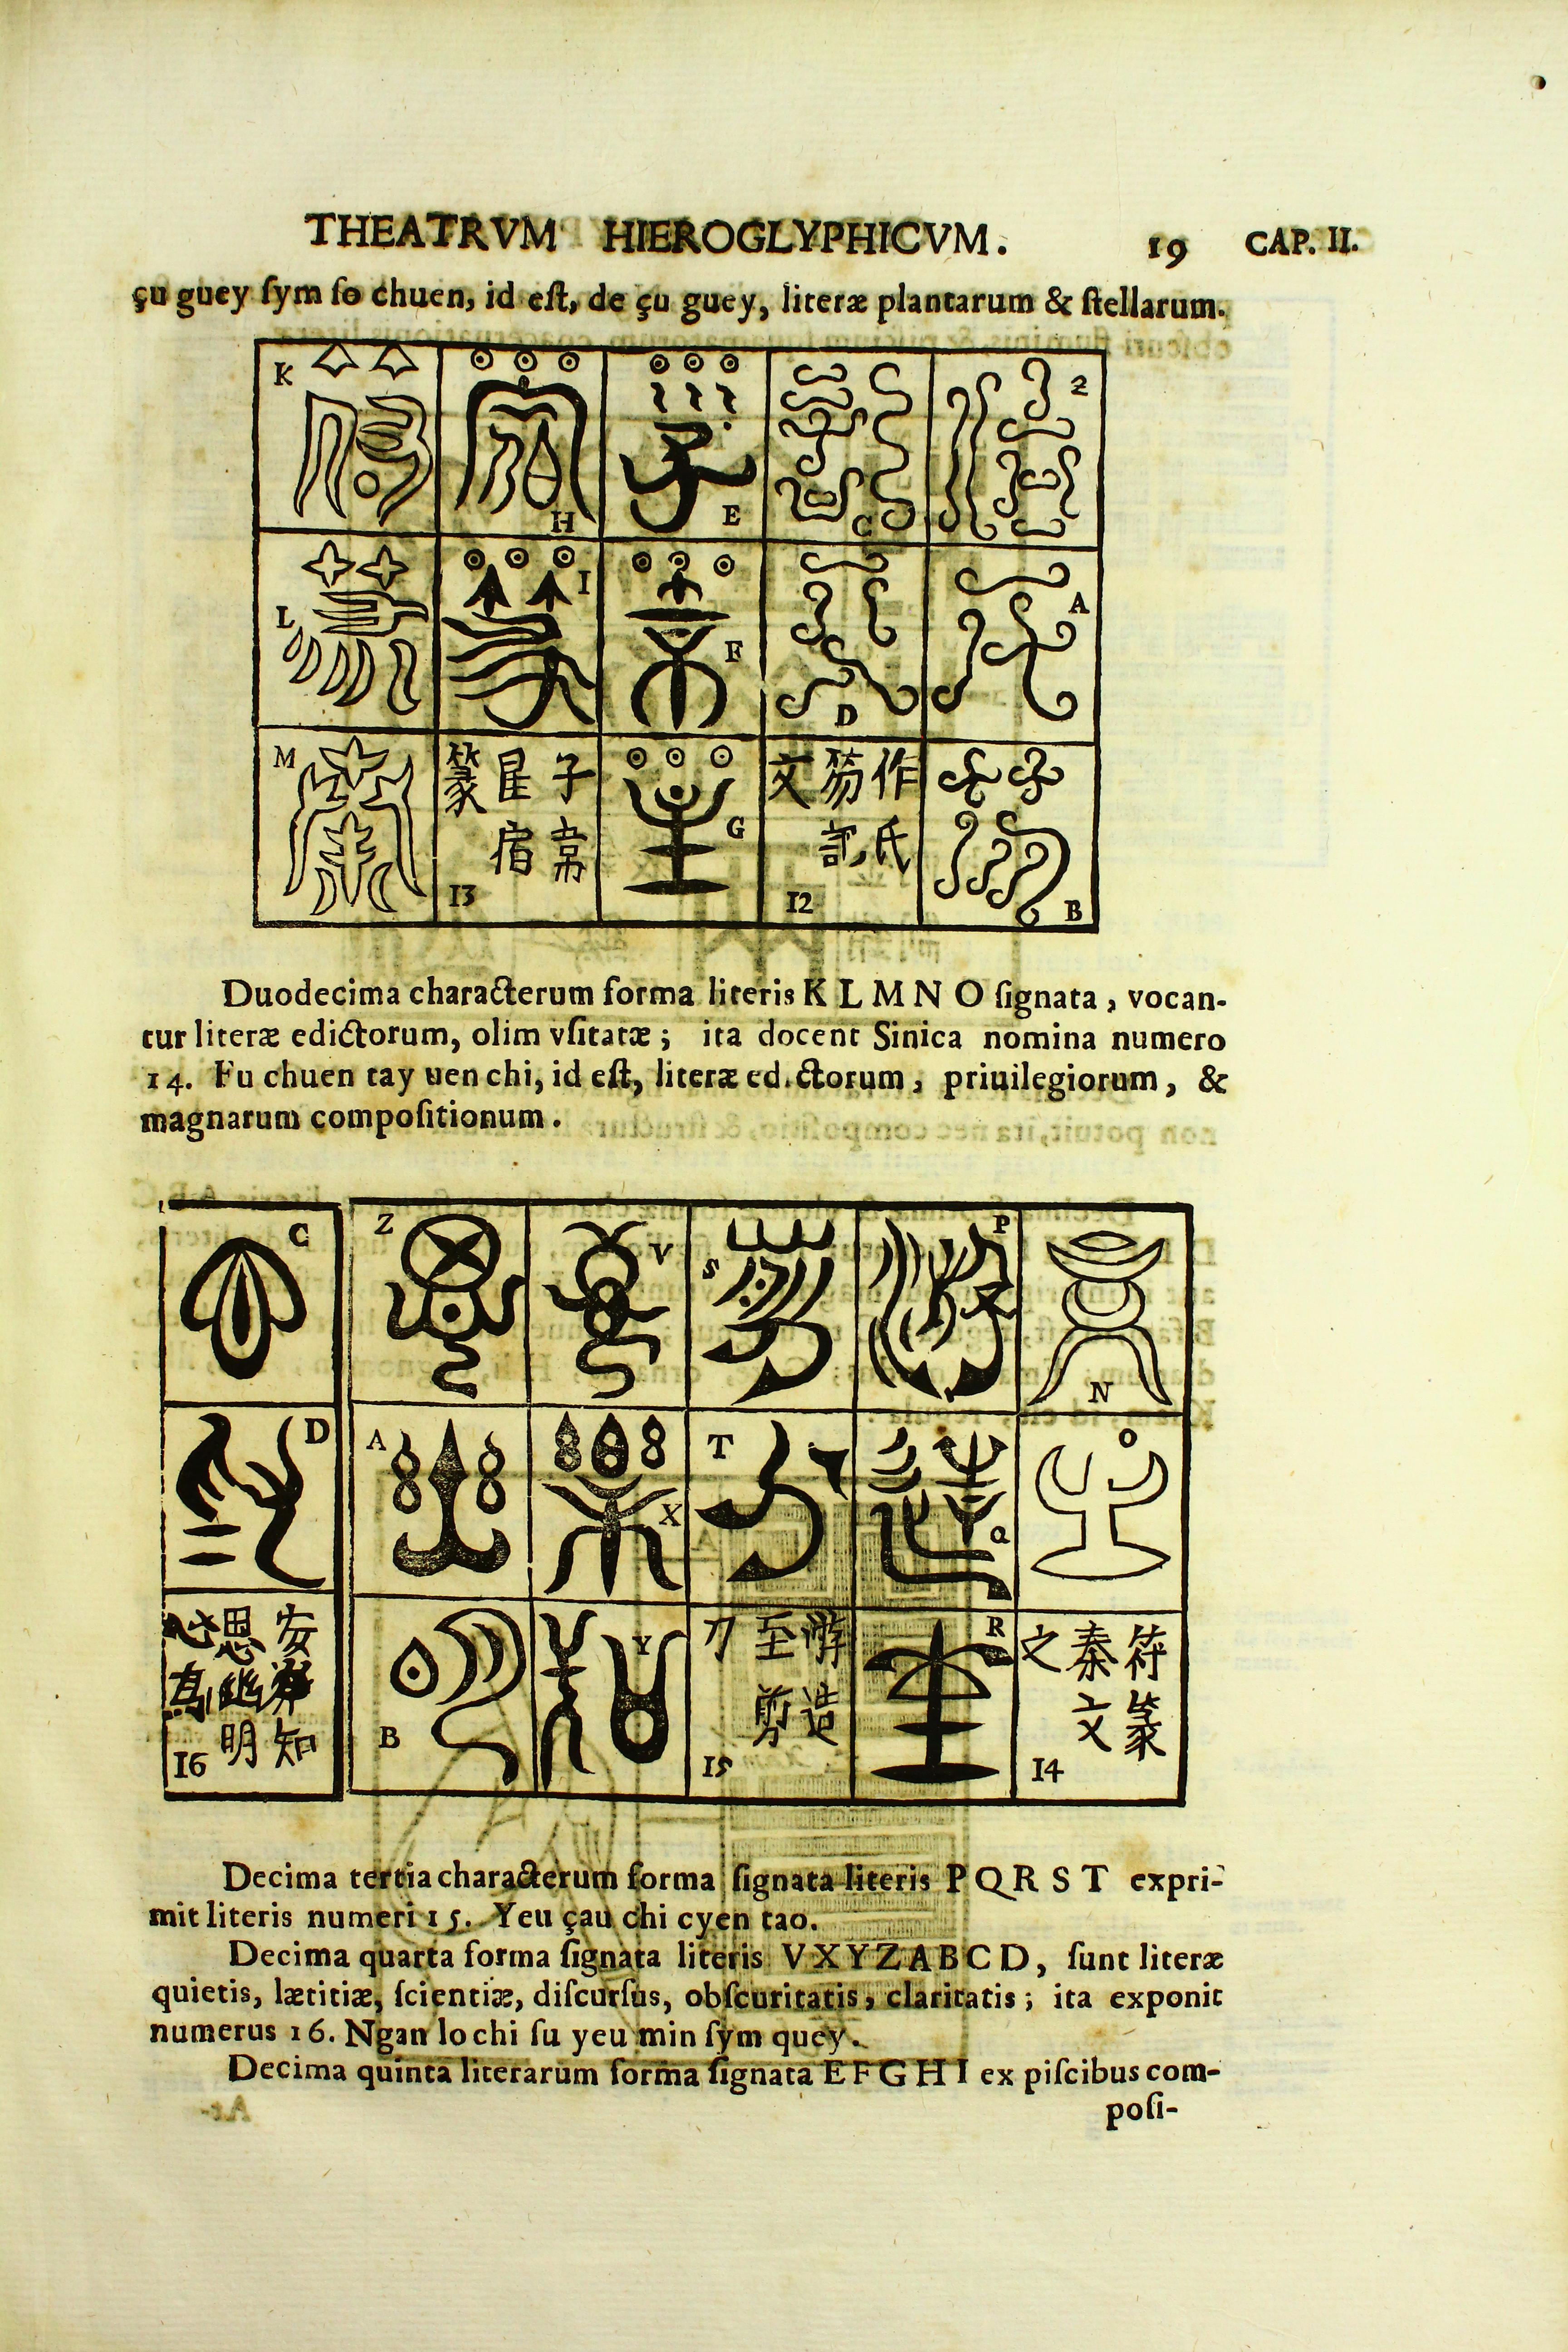 THEATRVM HIEROGLYPHICVM. 19 CAP. II.
çu guey ſym ſo chuen, id eſt, de çu guey, literæ plantarum & ſtellarum.
K H E C Z
L I F D A
M 13 G 12 B
子韋
星宿
篆
作氏
笏記
文
Duodecima characterum forma literis K L M N O ſignata, vocan-
tur literæ edictorum, olim vſitatæ; ita docent Sinica nomina numero
14. Fu chuen tay uen chi, id eſt, literæ edictorum, priuilegiorum, &
magnarum compoſitionum.
C Z V S P N
D A X T Q O
16 B Y 15 R 14
符篆
秦文
之
游造
至剪
刀
知
思 明
Decima tertia characterum forma ſignata literis P Q R S T expri-
mit literis numeri 15. Yeu çau chi cyen tao.
Decima quarta forma ſignata literis V X Y Z A B C D, ſunt literæ
quietis, lætitiæ, ſcientiæ, diſcurſus, obſcuritatis, claritatis; ita exponit
numerus 16. Ngan lo chi ſu yeu min ſym quey.
Decima quinta literarum forma ſignata E F G H I ex piſcibus com-
poſi-